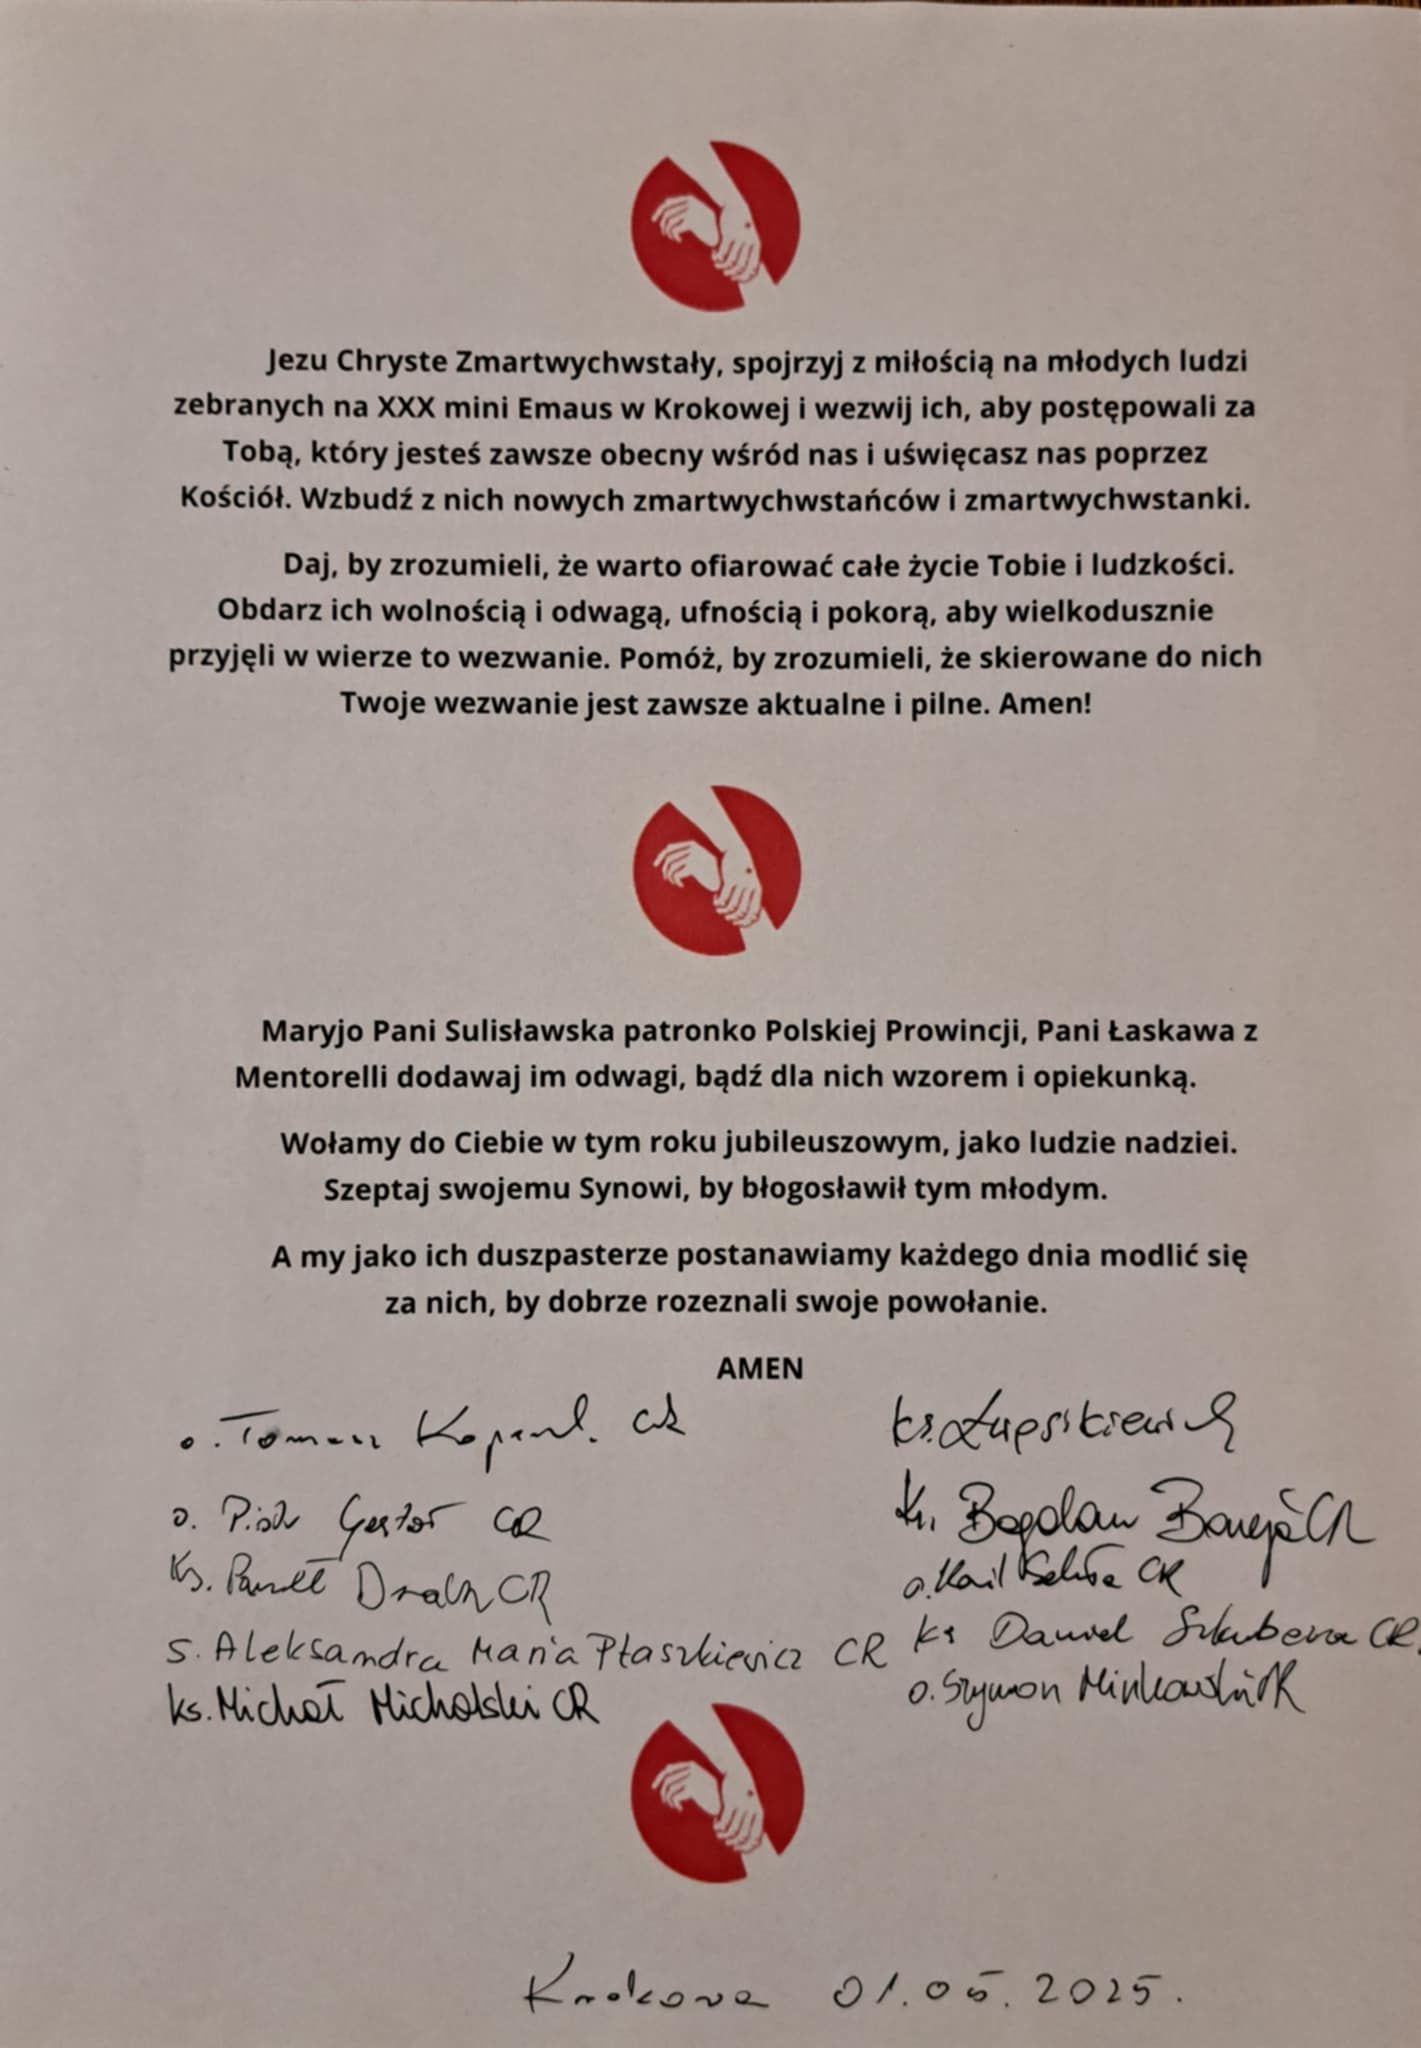 Jezu Chryste Zmartwychwstały, spojrzyj z miłością na młodych ludzi
zebranych na XXX mini Emaus w Krokowej i wezwij ich, aby postępowali za
Tobą, który jesteś zawsze obecny wśród nas i uświęcasz nas poprzez
Kościół. Wzbudź z nich nowych zmartwychwstańców i zmartwychwstanki.
Daj, by zrozumieli, że warto ofiarować całe życie Tobie i ludzkości.
Obdarz ich wolnością i odwagą, ufnością i pokorą, aby wielkodusznie
przyjęli w wierze to wezwanie. Pomóż, by zrozumieli, że skierowane do nich
Twoje wezwanie jest zawsze aktualne i pilne. Amen!
Maryjo Pani Sulisławska patronko Polskiej Prowincji, Pani Łaskawa z
Mentorelli dodawaj im odwagi, bądź dla nich wzorem i opiekunką.
Wołamy do Ciebie w tym roku jubileuszowym, jako ludzie nadziei.
Szeptaj swojemu Synowi, by błogosławił tym młodym.
A my jako ich duszpasterze postanawiamy każdego dnia modlić się
za nich, by dobrze rozeznali swoje powołanie.
AMEN
o. Tomasz CR
ks.
o. Piotr CR
ks. Bogdan CR
ks. Paweł CR
o. CR
s. Aleksandra Maria Ptaszkiewicz CR
ks Daniel CR
ks. Michał Michalski CR
o. Szymon Minkowski CR
Krokowa 01.05.2025.